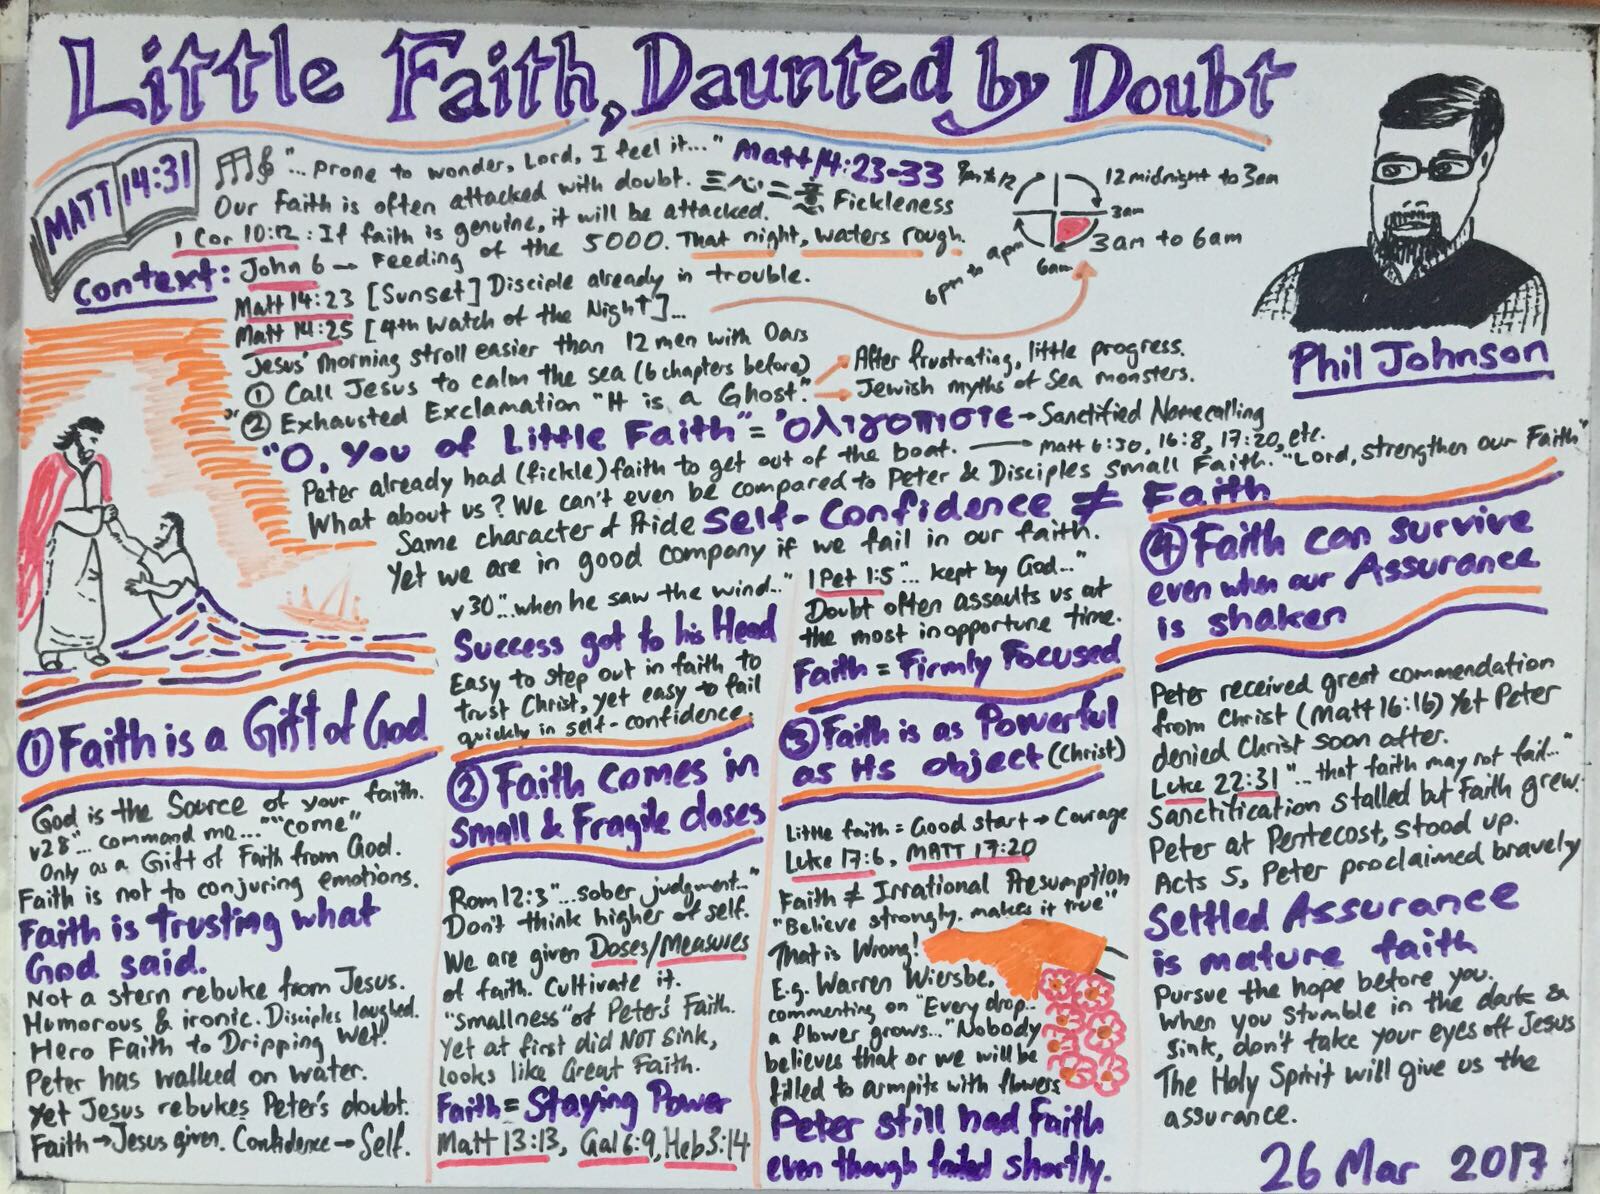 Little Faith, Daunted by Doubt
MATT 14:31
"... prone to wonder, Lord, I feel it..." Matt 14:23-33
Our Faith is often attacked with doubt. 三心二意 Fickleness
1 Cor 10:12: If faith is genuine, it will be attacked.
Context: John 6 → Feeding of the 5000. That night, waters rough.
Matt 14:23 [Sunset] Disciple already in trouble.
Matt 14:25 [4th Watch of the Night]...
12 midnight to 3am
3am
3am to 6am
6am
6pm to 9pm
Phil Johnson
Jesus' morning stroll easier than 12 men with Oars
① Call Jesus to calm the sea (6 chapters before)
② Exhausted Exclamation "It is a Ghost."
→ After frustrating, little progress.
→ Jewish myths of Sea monsters.
"O, You of Little Faith" = 'ολιγοπιστε → Sanctified Namecalling
Peter already had (fickle) faith to get out of the boat. → Matt 6:30, 16:8, 17:20, etc.
What about us? We can't even be compared to Peter & Disciples Small Faith. "Lord, strengthen our Faith"
Same character of Pride Self-Confidence ≠ Faith
Yet we are in good company if we fail in our faith.
① Faith is a Gift of God
God is the Source of your faith.
v28 "... command me..." "come"
Only as a Gift of Faith from God.
Faith is not to conjuring emotions.
Faith is trusting what
God said.
Not a stern rebuke from Jesus.
Humorous & ironic. Disciples laughed.
Hero Faith to Dripping Wet!
Peter has walked on water.
Yet Jesus rebukes Peter's doubt.
Faith → Jesus given. Confidence → Self.
v30 "...when he saw the wind..."
Success got to his Head
Easy to step out in faith to
trust Christ, yet easy to fail
quickly in self-confidence.
② Faith comes in
small & Fragile doses
Rom 12:3 "...sober judgment..."
Don't think higher of self.
We are given Doses/Measures
of faith. Cultivate it.
"Smallness" of Peter's Faith.
Yet at first did NOT sink,
looks like Great Faith.
Faith = Staying Power
Matt 13:13, Gal 6:9, Heb 3:14
1 Pet 1:5 "... kept by God..."
Doubt often assaults us at
the most inopportune time.
Faith = Firmly Focused
③ Faith is as Powerful
as its object (Christ)
Little faith = Good start → Courage
Luke 17:6, MATT 17:20
Faith ≠ Irrational Presumption
"Believe strongly, makes it true"
That is Wrong!
E.g. Warren Wiersbe,
commenting on "Every drop..
a flower grows..." Nobody
believes that or we will be
filled to armpits with flowers
Peter still had Faith
even though failed shortly.
④ Faith can survive
even when our Assurance
is shaken
Peter received great commendation
from Christ (Matt 16:16) Yet Peter
denied Christ soon after.
Luke 22:31 "... that faith may not fail..."
Sanctification stalled but Faith grew.
Peter at Pentecost, stood up.
Acts 5, Peter proclaimed bravely
Settled Assurance
is mature faith
Pursue the hope before you.
When you stumble in the dark &
sink, don't take your eyes off Jesus
The Holy Spirit will give us the
assurance.
26 Mar 2017